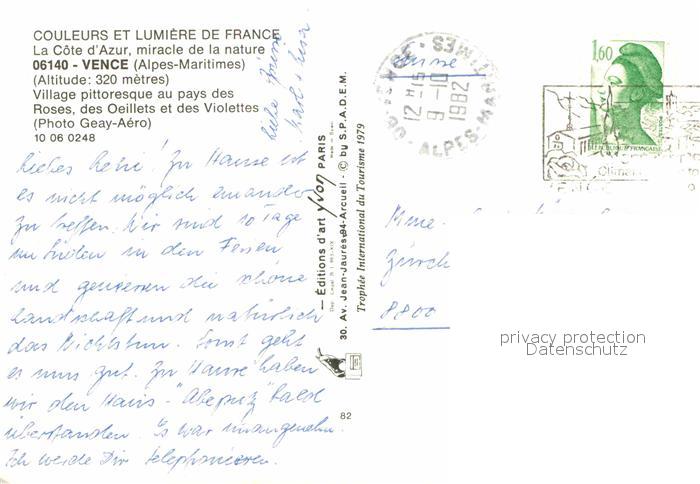 COULEURS ET LUMIÈRE DE FRANCE
La Côte d'Azur, miracle de la nature
06140 - VENCE (Alpes-Maritimes)
(Altitude: 320 mètres)
Village pittoresque au pays des
Roses, des Oeillets et des Violettes
(Photo Geay-Aéro)
10 06 0248
Liebes Reni! Zu Hause ist
es nicht möglich einander
zu treffen. Wir sind 10 Tage
im Süden in den Ferien
und geniessen die schöne
Landschaft und natürlich
das Nichtstun. Sonst geht
es uns gut. Zu Hause haben
wir den Haus-"Abeputz" bald
überstanden. Es war unangenehm.
Ich werde Dir telephonieren.
Liebe Grüsse
— Éditions d'art Yvon PARIS
30. Av. Jean-Jaurès 94-Arcueil - © by S.P.A.D.E.M.
Trophée International du Tourisme 1979
82
12 H 15
9 - 10
1982
ALPES-MARITIMES
1,60
Suisse
Mme.
Zürich
8800
privacy protection
Datenschutz